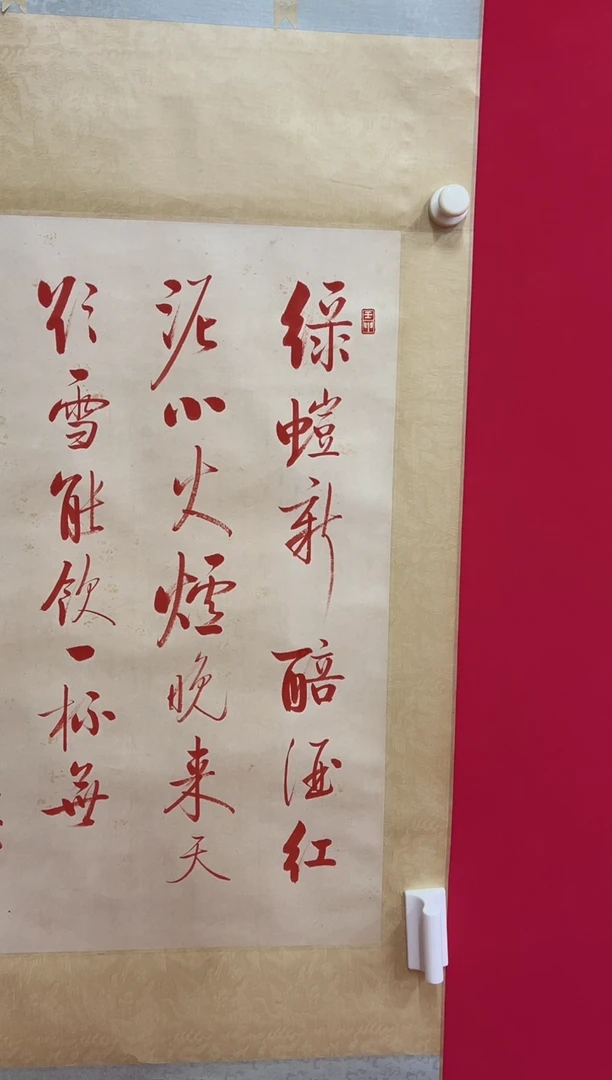 綠螘新醅酒紅
泥小火爐晚来天
欲雪能飲一杯無